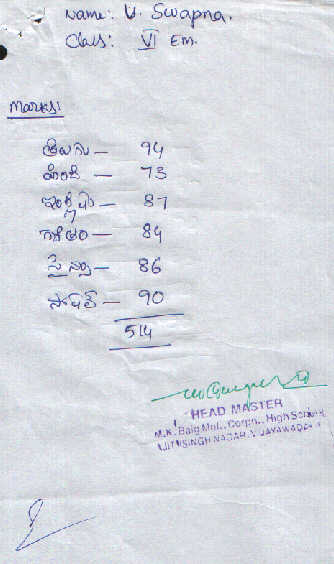 Name: V. Swapna.
Class: VI Em.
Marks:
తెలుగు — 94
హిందీ — 73
ఇంగ్లీషు — 87
గణితం — 84
సైన్సు — 86
సోషల్ — 90
514
HEAD MASTER
M.K. Baig Mpl. Corpn. High School
AJITHSINGH NAGAR, VIJAYAWADA